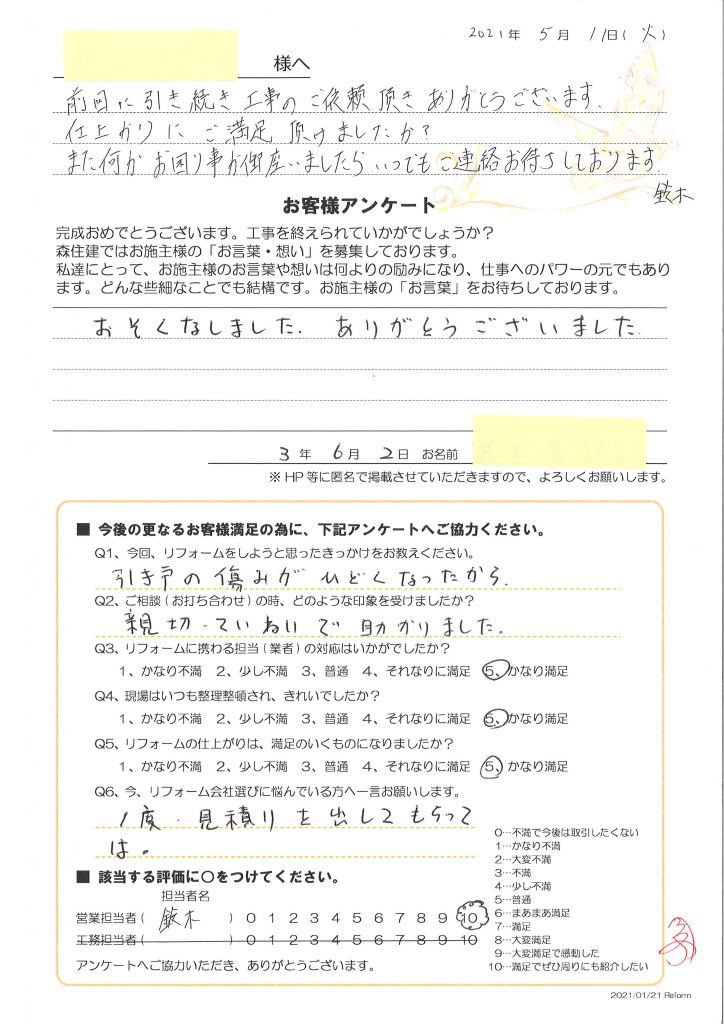 2021年 5月 11日(火)
様へ
前回に引き続き工事のご依頼頂きありがとうございます.
仕上がりにご満足頂けましたか?
また何かお困り事が御座いましたらいつでもご連絡お待ちしております
鈴木
お客様アンケート
完成おめでとうございます。工事を終えられていかがでしょうか?
森住建ではお施主様の「お言葉・想い」を募集しております。
私達にとって、お施主様のお言葉や想いは何よりの励みになり、仕事へのパワーの元でもあり
ます。どんな些細なことでも結構です。お施主様の「お言葉」をお待ちしております。
おそくなしました. ありがとうございました.
3年 6月 2日 お名前
※HP等に匿名で掲載させていただきますので、よろしくお願いします。
■ 今後の更なるお客様満足の為に、下記アンケートへご協力ください。
Q1、今回、リフォームをしようと思ったきっかけをお教えください。
引き戸の傷みがひどくなったから.
Q2、ご相談(お打ち合わせ)の時、どのような印象を受けましたか?
親切・ていねいで助かりました.
Q3、リフォームに携わる担当(業者)の対応はいかがでしたか?
1、かなり不満 2、少し不満 3、普通 4、それなりに満足 5、かなり満足
Q4、現場はいつも整理整頓され、きれいでしたか?
1、かなり不満 2、少し不満 3、普通 4、それなりに満足 5、かなり満足
Q5、リフォームの仕上がりは、満足のいくものになりましたか?
1、かなり不満 2、少し不満 3、普通 4、それなりに満足 5、かなり満足
Q6、今、リフォーム会社選びに悩んでいる方へ一言お願いします。
1度・見積りを出してもらって
は。
■ 該当する評価に○をつけてください。
担当者名
営業担当者( 鈴木 ) 0 1 2 3 4 5 6 7 8 9 10
工務担当者( ) 0 1 2 3 4 5 6 7 8 9 10
アンケートへご協力いただき、ありがとうございます。
0…不満で今後は取引したくない
1…かなり不満
2…大変不満
3…不満
4…少し不満
5…普通
6…まあまあ満足
7…満足
8…大変満足
9…大変満足で感動した
10…満足でぜひ周りにも紹介したい
2021/01/21 Reform